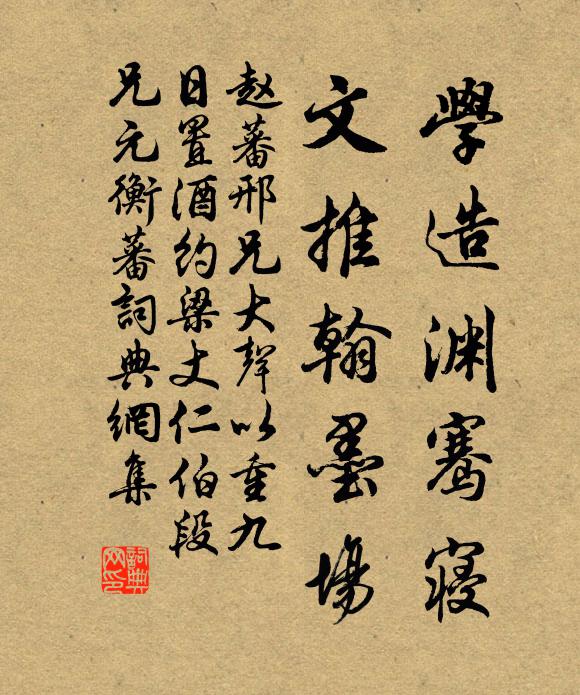 學造渊骞寝
文推翰墨場
赵蕃邢兄大聲以重九
日置酒約梁丈仁伯段
兄元衡蕃詞典網集
詞典
网印